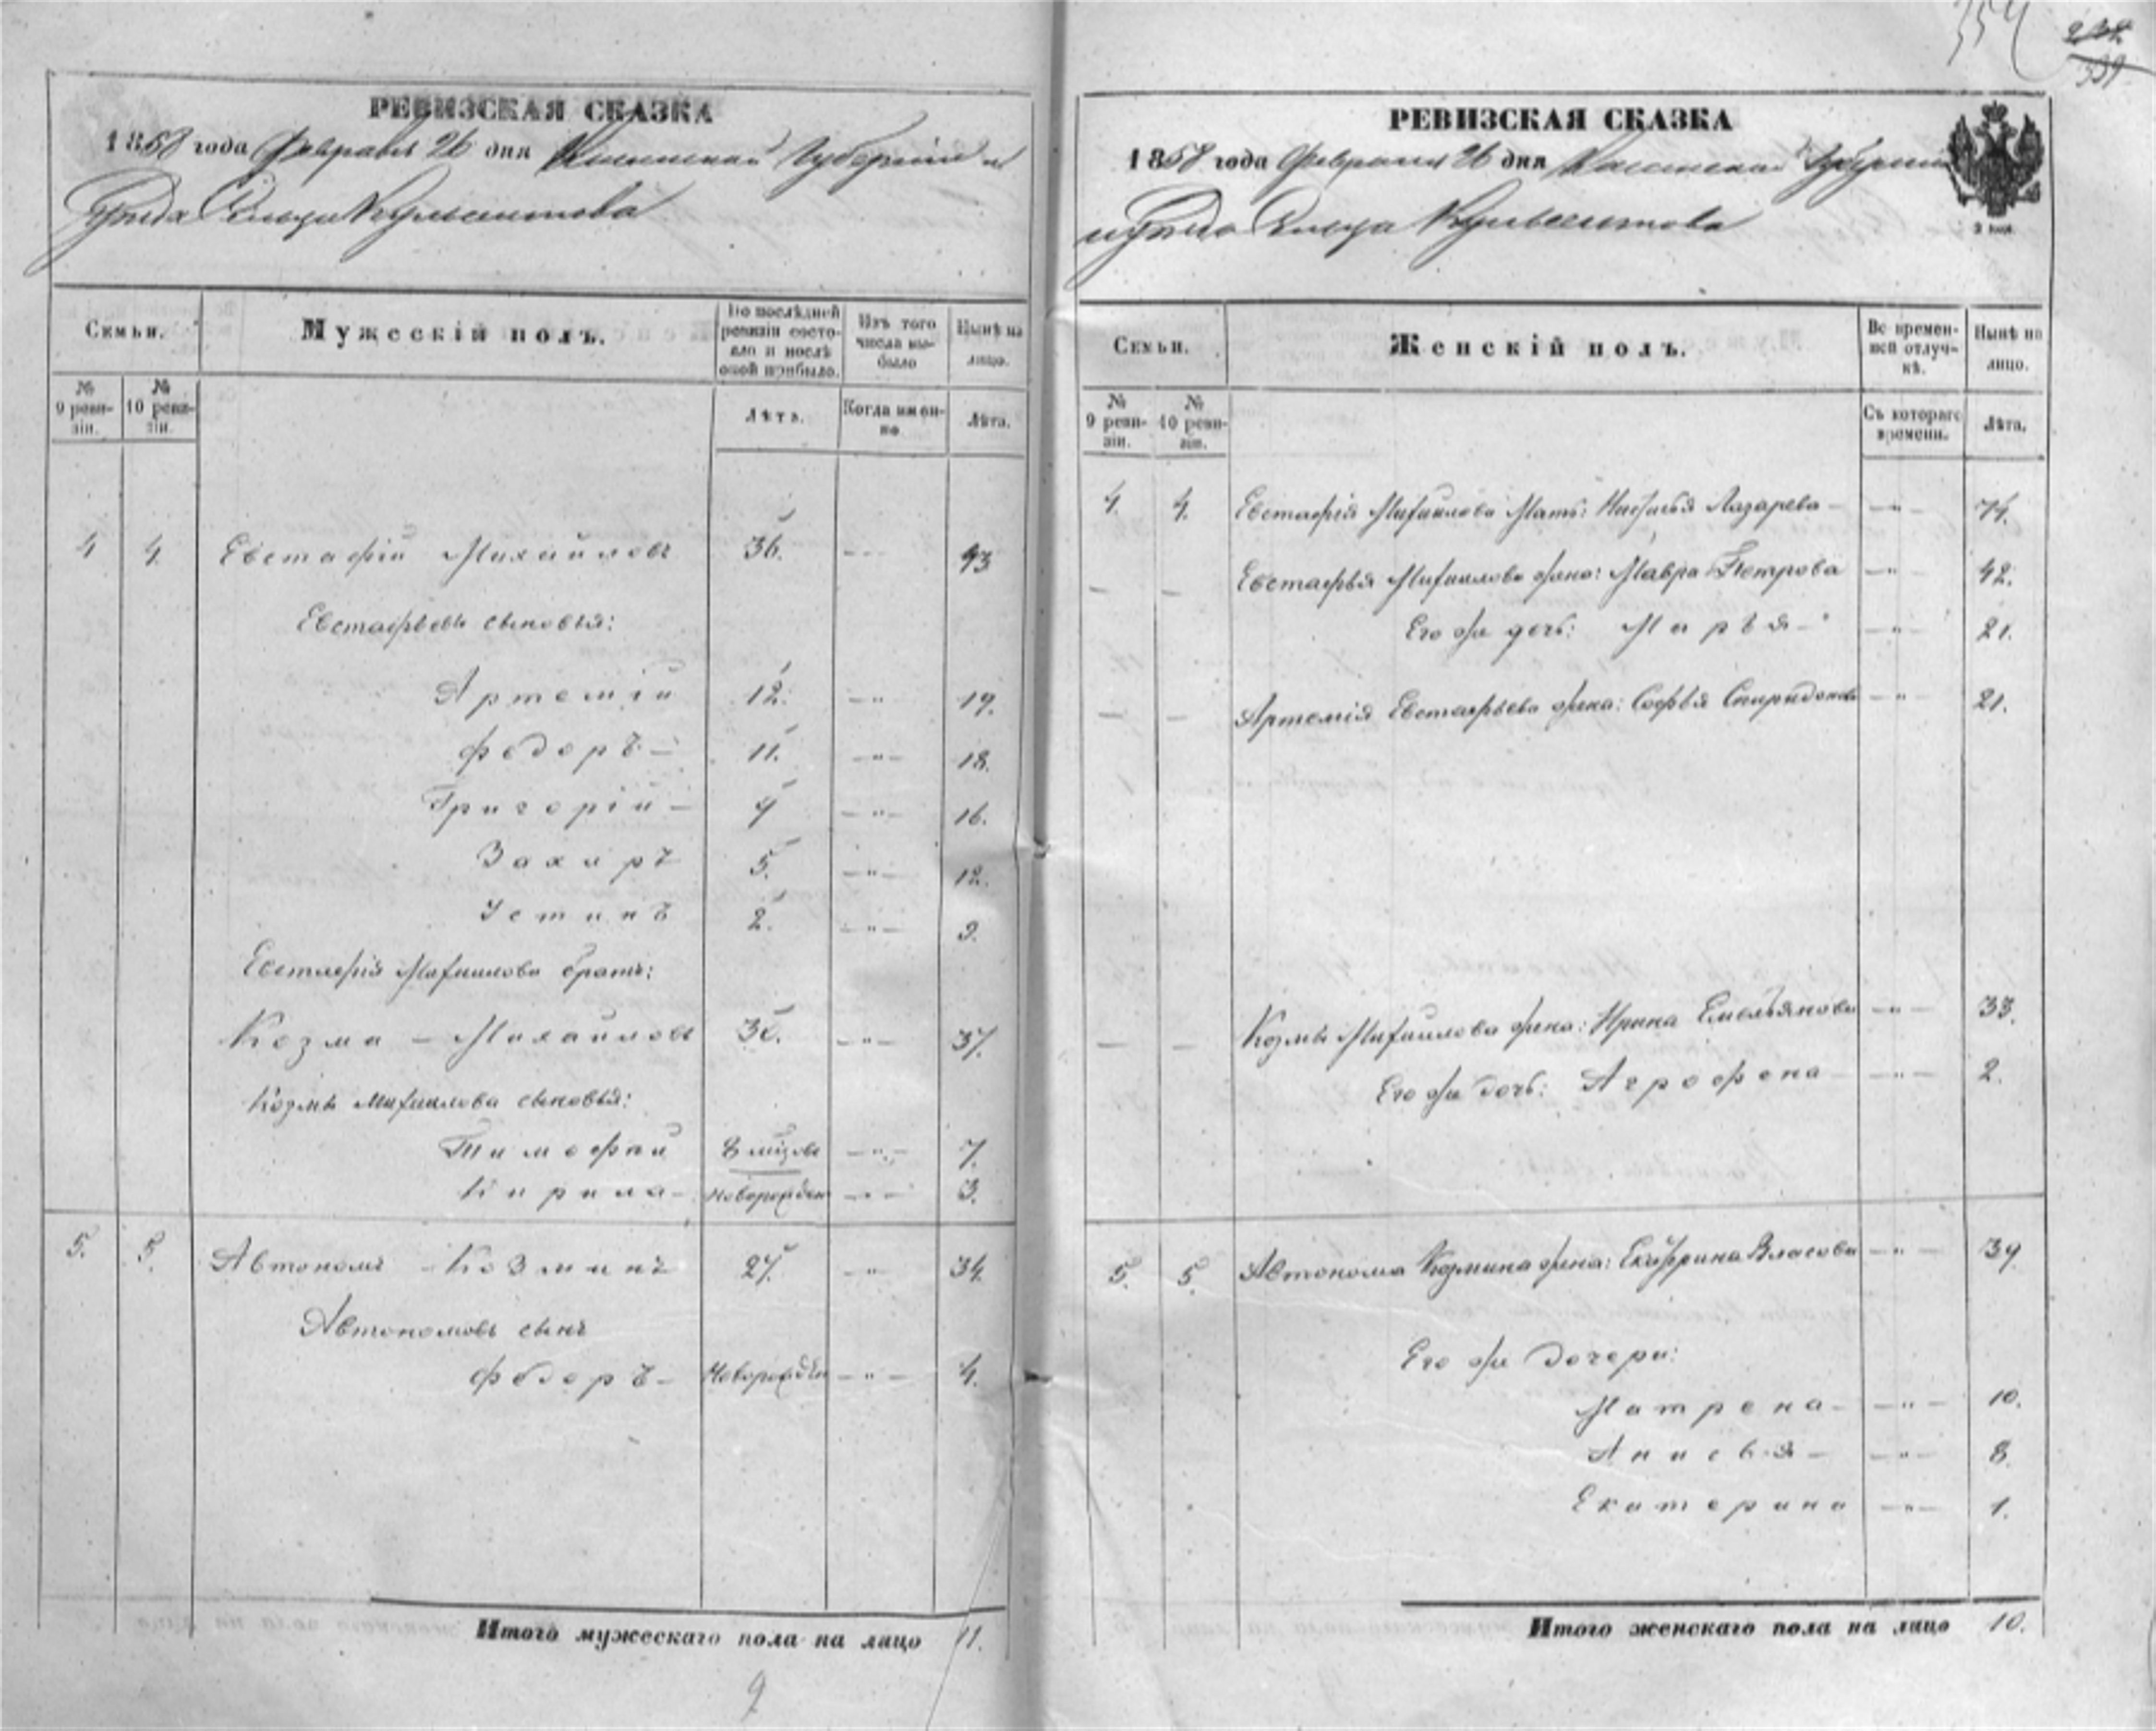 354
РЕВИЗСКАЯ СКАЗКА
1858 года Февраля 26 дня Казанской Губерніи и
Уѣзда Сельца Кульсеитова
Семьи.
Мужескій полъ.
По послѣдней ревизіи состояло и послѣ оной прибыло.
Изъ того числа выбыло
Нынѣ на лицо.
№ 9 ревизіи.
№ 10 ревизіи.
Лѣтъ.
Когда именно
Лѣта.
4 4. Евстафій Михайловъ 36. 43
Евстафьевы сыновья:
Артемій 12. — " — 19.
Федоръ — 11. — " — 18.
Григорій — 9 — " — 16.
Захаръ 5. — " — 12.
Устинъ 2. — " — 9.
Евстафія Михайлова братъ:
Козма — Михайловъ 30. — " — 37.
Козмы Михайлова сыновья:
Тимофей — " — 7.
Кирила — новорожден — " — 3.
5. 5. Автономъ — Козминъ 27. — " 34.
Автономовъ сынъ
Федоръ — Новорожден — " — 4.
Итого мужескаго пола на лицо 11.
9
РЕВИЗСКАЯ СКАЗКА
1858 года Февраля 26 дня Казанской Губерніи
и Уѣзда Сельца Кульсеитова
Семьи.
Женскій полъ.
Во временной отлучкѣ.
Нынѣ на лицо.
№ 9 ревизіи.
№ 10 ревизіи.
Съ котораго времени.
Лѣта.
4. 4. Евстафія Михайлова Мать: Лазарева — — " — 74.
— — Евстафья Михайлова жена: Мавра Петрова — " — 42.
Его же дочь: Марья — — " — 21.
— — Артемія Евстафьева жена: Софья Спиридонова — " — 21.
— — Козмы Михайлова жена: Ирина Емельянова — " — 33.
Его же дочь: Агрофена — " — 2.
5. 5. Автонома Козмина жена: Екатерина Власова — " — 39
Его же дочери:
Матрена — — " — 10.
Анисья — — " — 8
Екатерина — " — 1.
Итого женскаго пола на лицо 10.